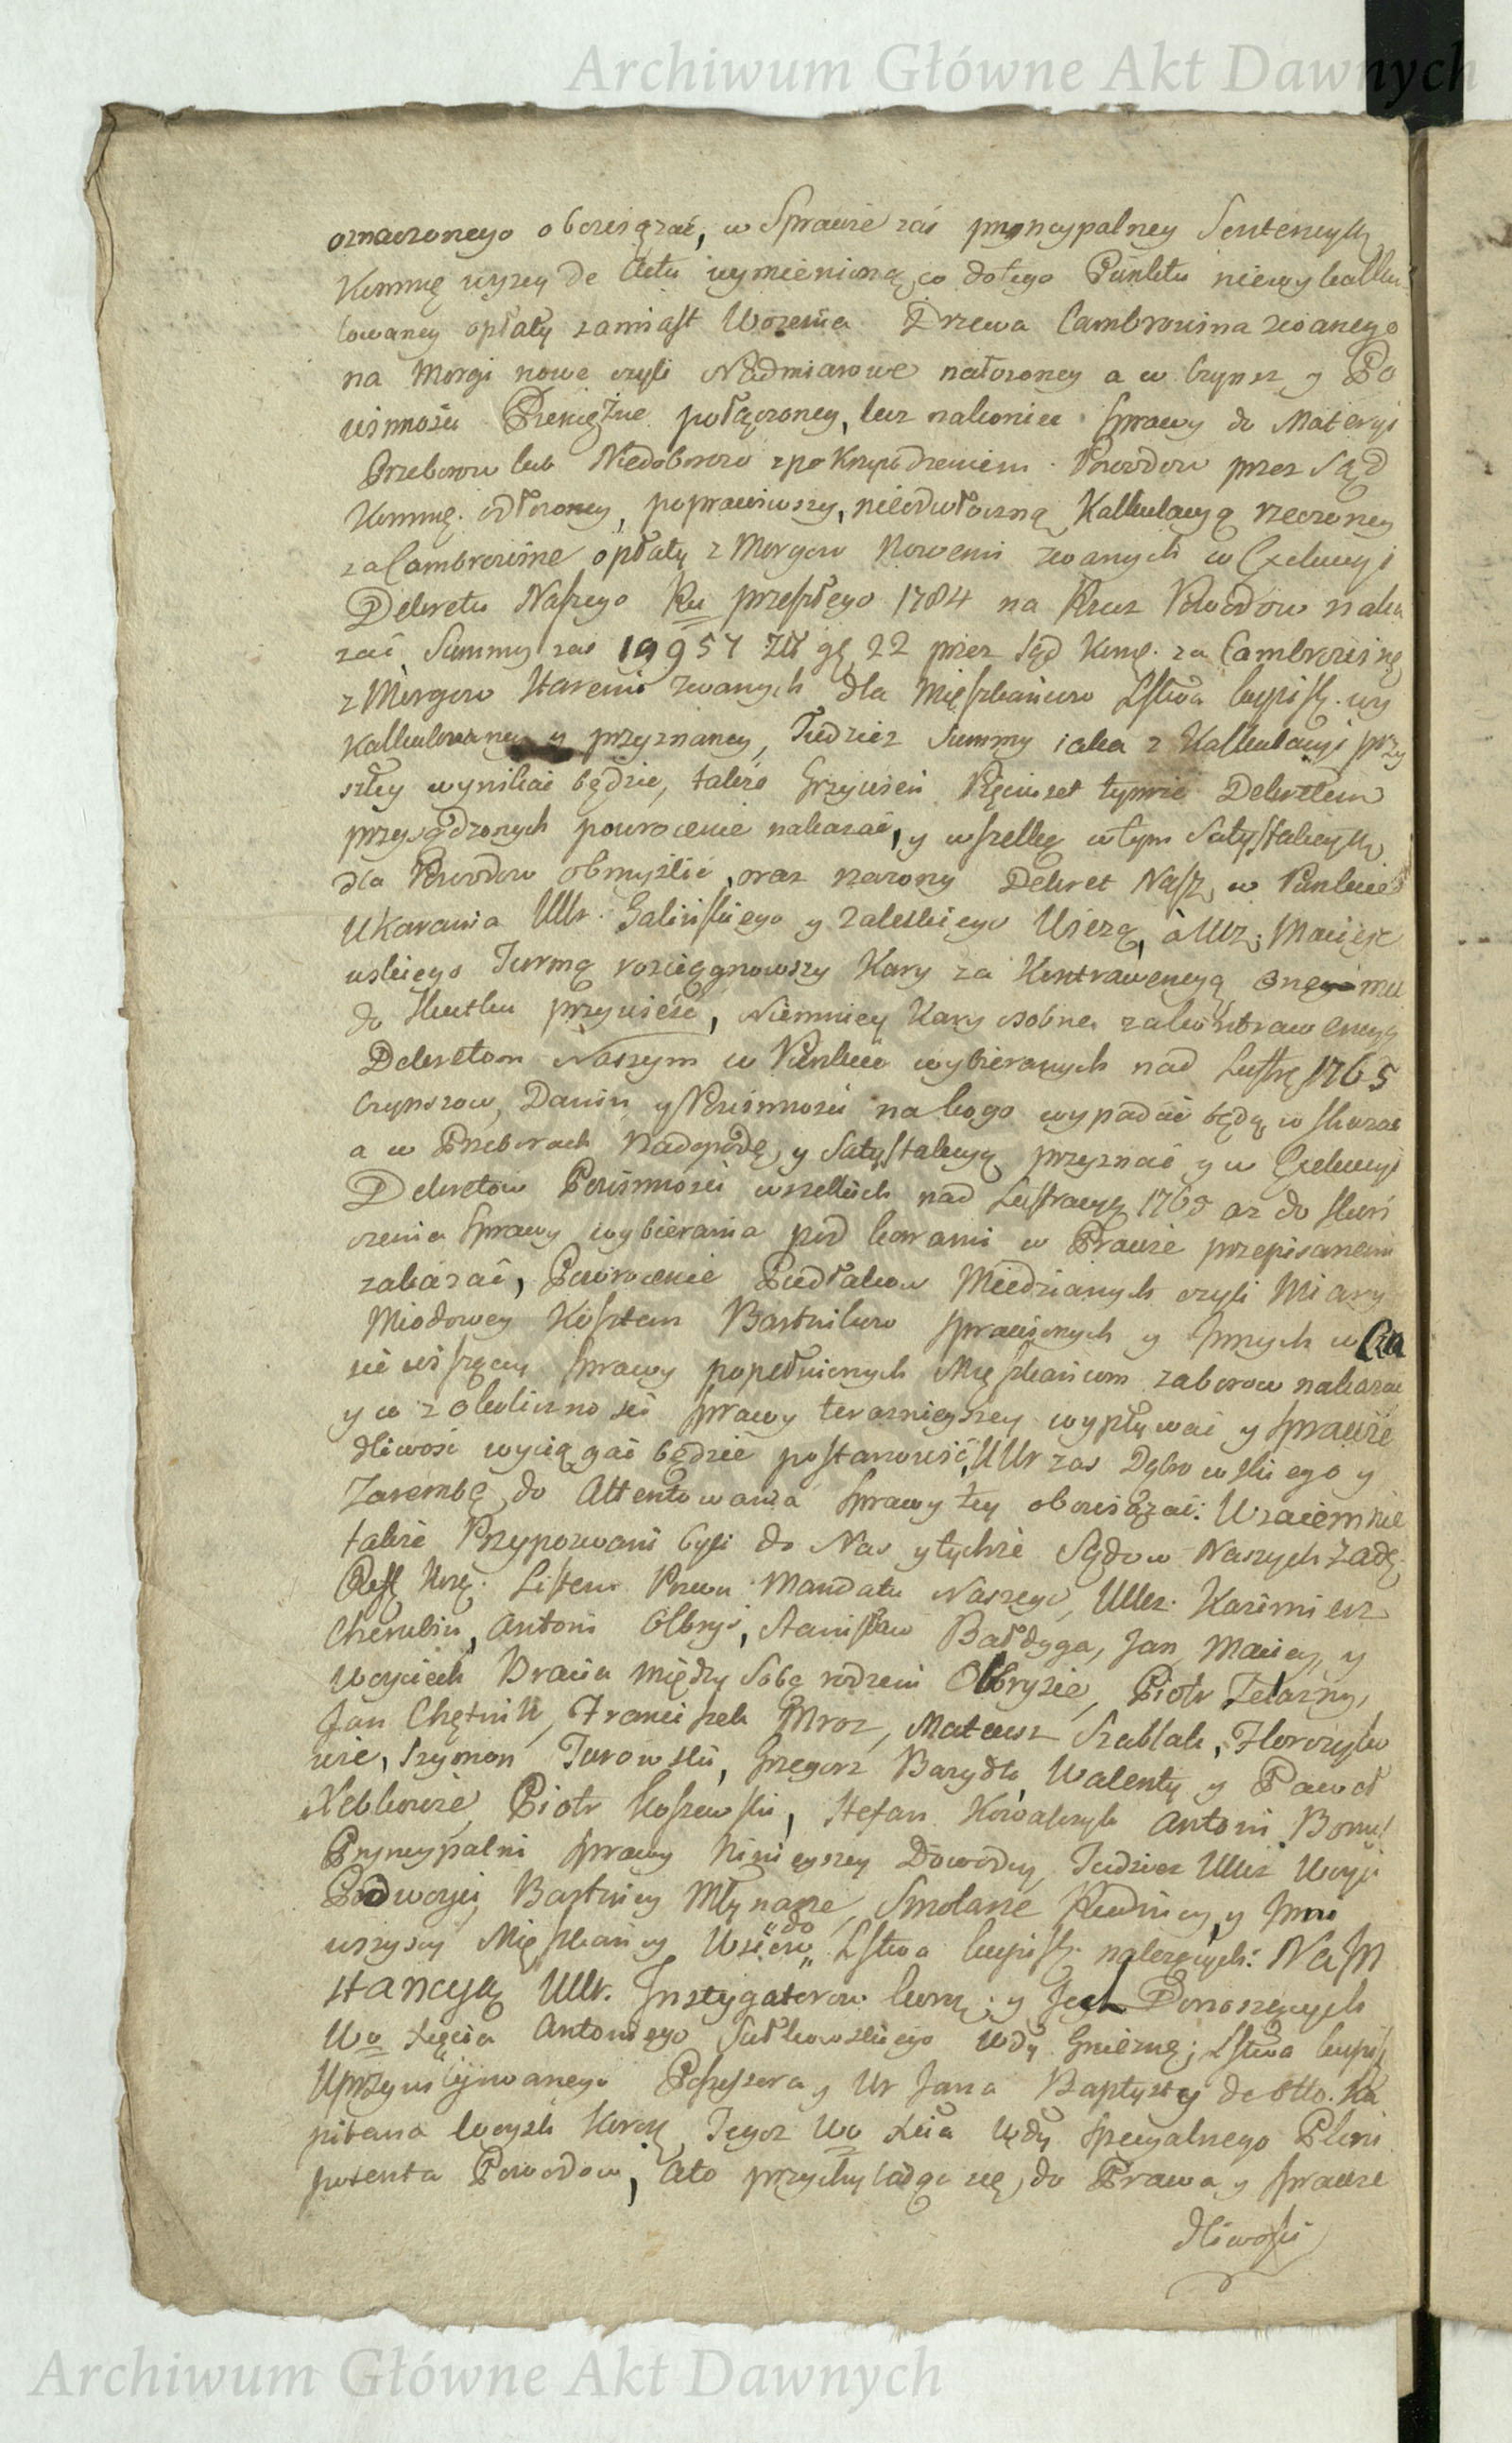 Archiwum Główne Akt Dawnych
oznaczonego obowiązać, w Sprawie zaś pryncypalney Sentencyą
Kommę wyzey de Actu wymienioną, co do tego Punktu niewykalku
lowaney opłaty zamiast Wożenia Drzewa Cambrowina zwanego
na Morgi nowe czyli Nadmiarowe nałożoney a w Czynsz y Po
winności Pieniężne połączoney, lecz nakoniec Sprawy do Materyi
Przeborow lub Niedoborow z pokrzywdzeniem Powodow przez Sąd
Kommę. odłożoney, poprawiwszy, nieodwłoczną Kalkulacyą rzeczoney
za Cambrowinę opłaty z Morgow Nowemi zwanych w Exekucyi
Dekretu Naszego Ru przeszłego 1784 na Rzecz Powodow naka
zać, Summy zaś 19957 Złł gę 22 przez Sąd Komę. za Cambrowinę
z Morgow Staremi zwanych dla Mięszkańcow Lstwa Łupisk. wy
kalkulowaney y przyznaney, Tudzież Summy iaka z Kalkulacyi przy
szłey wynikać będzie, także Grzywien Pięciuset tymże Dekretem
przysądzonych powrocenie nakazać, y wszelką w tym Satysfakcyą
dla Powodow obmyślić, oraz rzeczony Dekret Nasz, w Punkcie
Ukarania UUr. Galińskiego y Zaleskiego Wieżą, a UUrz: Macieje
wskiego Turmą rozciągnowszy Kary za Kontrawencyą onemu
do Skutku przywieść, Niemniey Kary osobne za kontrawencyą
Dekretom Naszym w Punkcie wybieranych nad Lustrę 1765
Czynszow, Danin y Powinności na kogo wypadać będą wskazać
a w Przeborach Nadgrodę, y Satysfakcyą przyznać y w Exekucyi
Dekretow Powinności wszelkich nad Lustracyą 1765 aż do skoń
czenia Sprawy wybierania pod karami w Prawie przepisanemi
zakazać, Powrocenie Pudłakow Miedzianych czyli Miary
Miodowey Kosztem Bartnikow sprawionych y Innych w Cza
sie wiszącey Sprawy popełnionych Mięszkańcom zaborow nakazać
y co z okoliczności Sprawy teraznieyszey wypływać y Sprawie
dliwość wyciągać będzie postanowić, UUr zas Dąbrowskiego y
Zarembę do Attentowania Sprawy tey obowiązać: Wzaiemnie
także Przypozwani byli do Nas y tychże Sądow Naszych Zadę.
Refę Korę. Listem Pozwu Mandatu Naszego, UUcz. Kazimierz
Cherubin, Antoni Olbryś, Stanisław Bałdyga, Jan, Maciey, y
Woyciech Bracia między Sobą rodzeni Olbrysie, Piotr Zelazny,
Jan Chętnik, Franciszek Mroz, Mateusz Szablak, Florczyko
wie, Szymon Turowski, Grzegorz Bazydło, Walenty y Paweł
Xebkowie, Piotr Koszewski, Stefan Kowalczyk Antoni Bonu
Pryncypalni Sprawy Ninieyszey Dowodcy, Tudziesz UUcz Woyci
Podwoyci, Bartnicy Młynarze, Smolarze Rudnicy, y Inni
wszyscy Mięszkańcy Wsiow „do„ Lstwa Łupisk. należących: Na In
stancyą UUr. Instygatorow Korą. y Jch Donoszących
Wo Xięcia Antoniego Sułkowskiego Wdy Gnieznę; Lstwa Łupisk
Uprzywilejowanego Possessora y Ur Jana Baptysty de Otto. Ka
pitana woysk Koroę Tegoż Wo Xcia Wdy specyalnego Pleni
potenta Powodow, Ato przychylaiąc się, do Prawa, y Sprawie
dliwości
Archiwum Główne Akt Dawnych